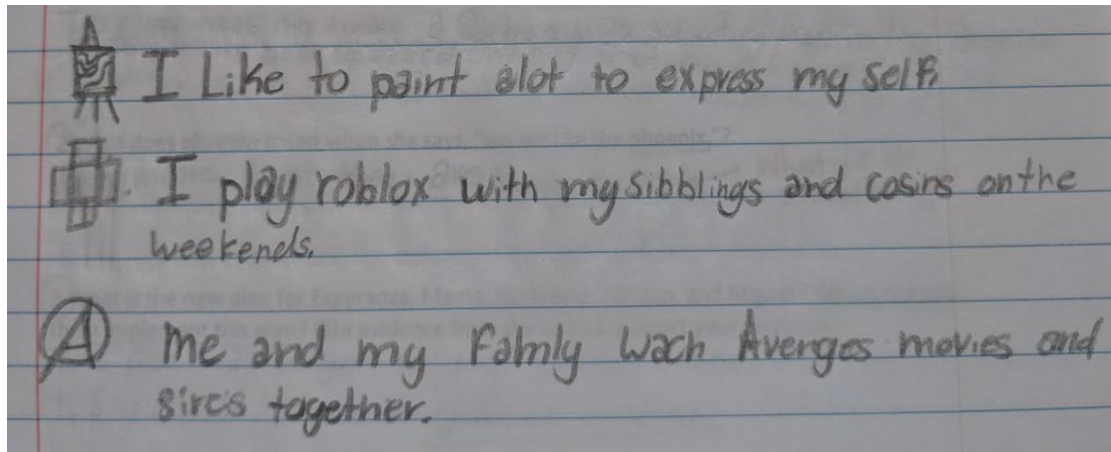 I Like to paint alot to express my self.
I play roblox with my sibblings and casins on the
weekends.
me and my Famly wach Averges movies and
sires together.